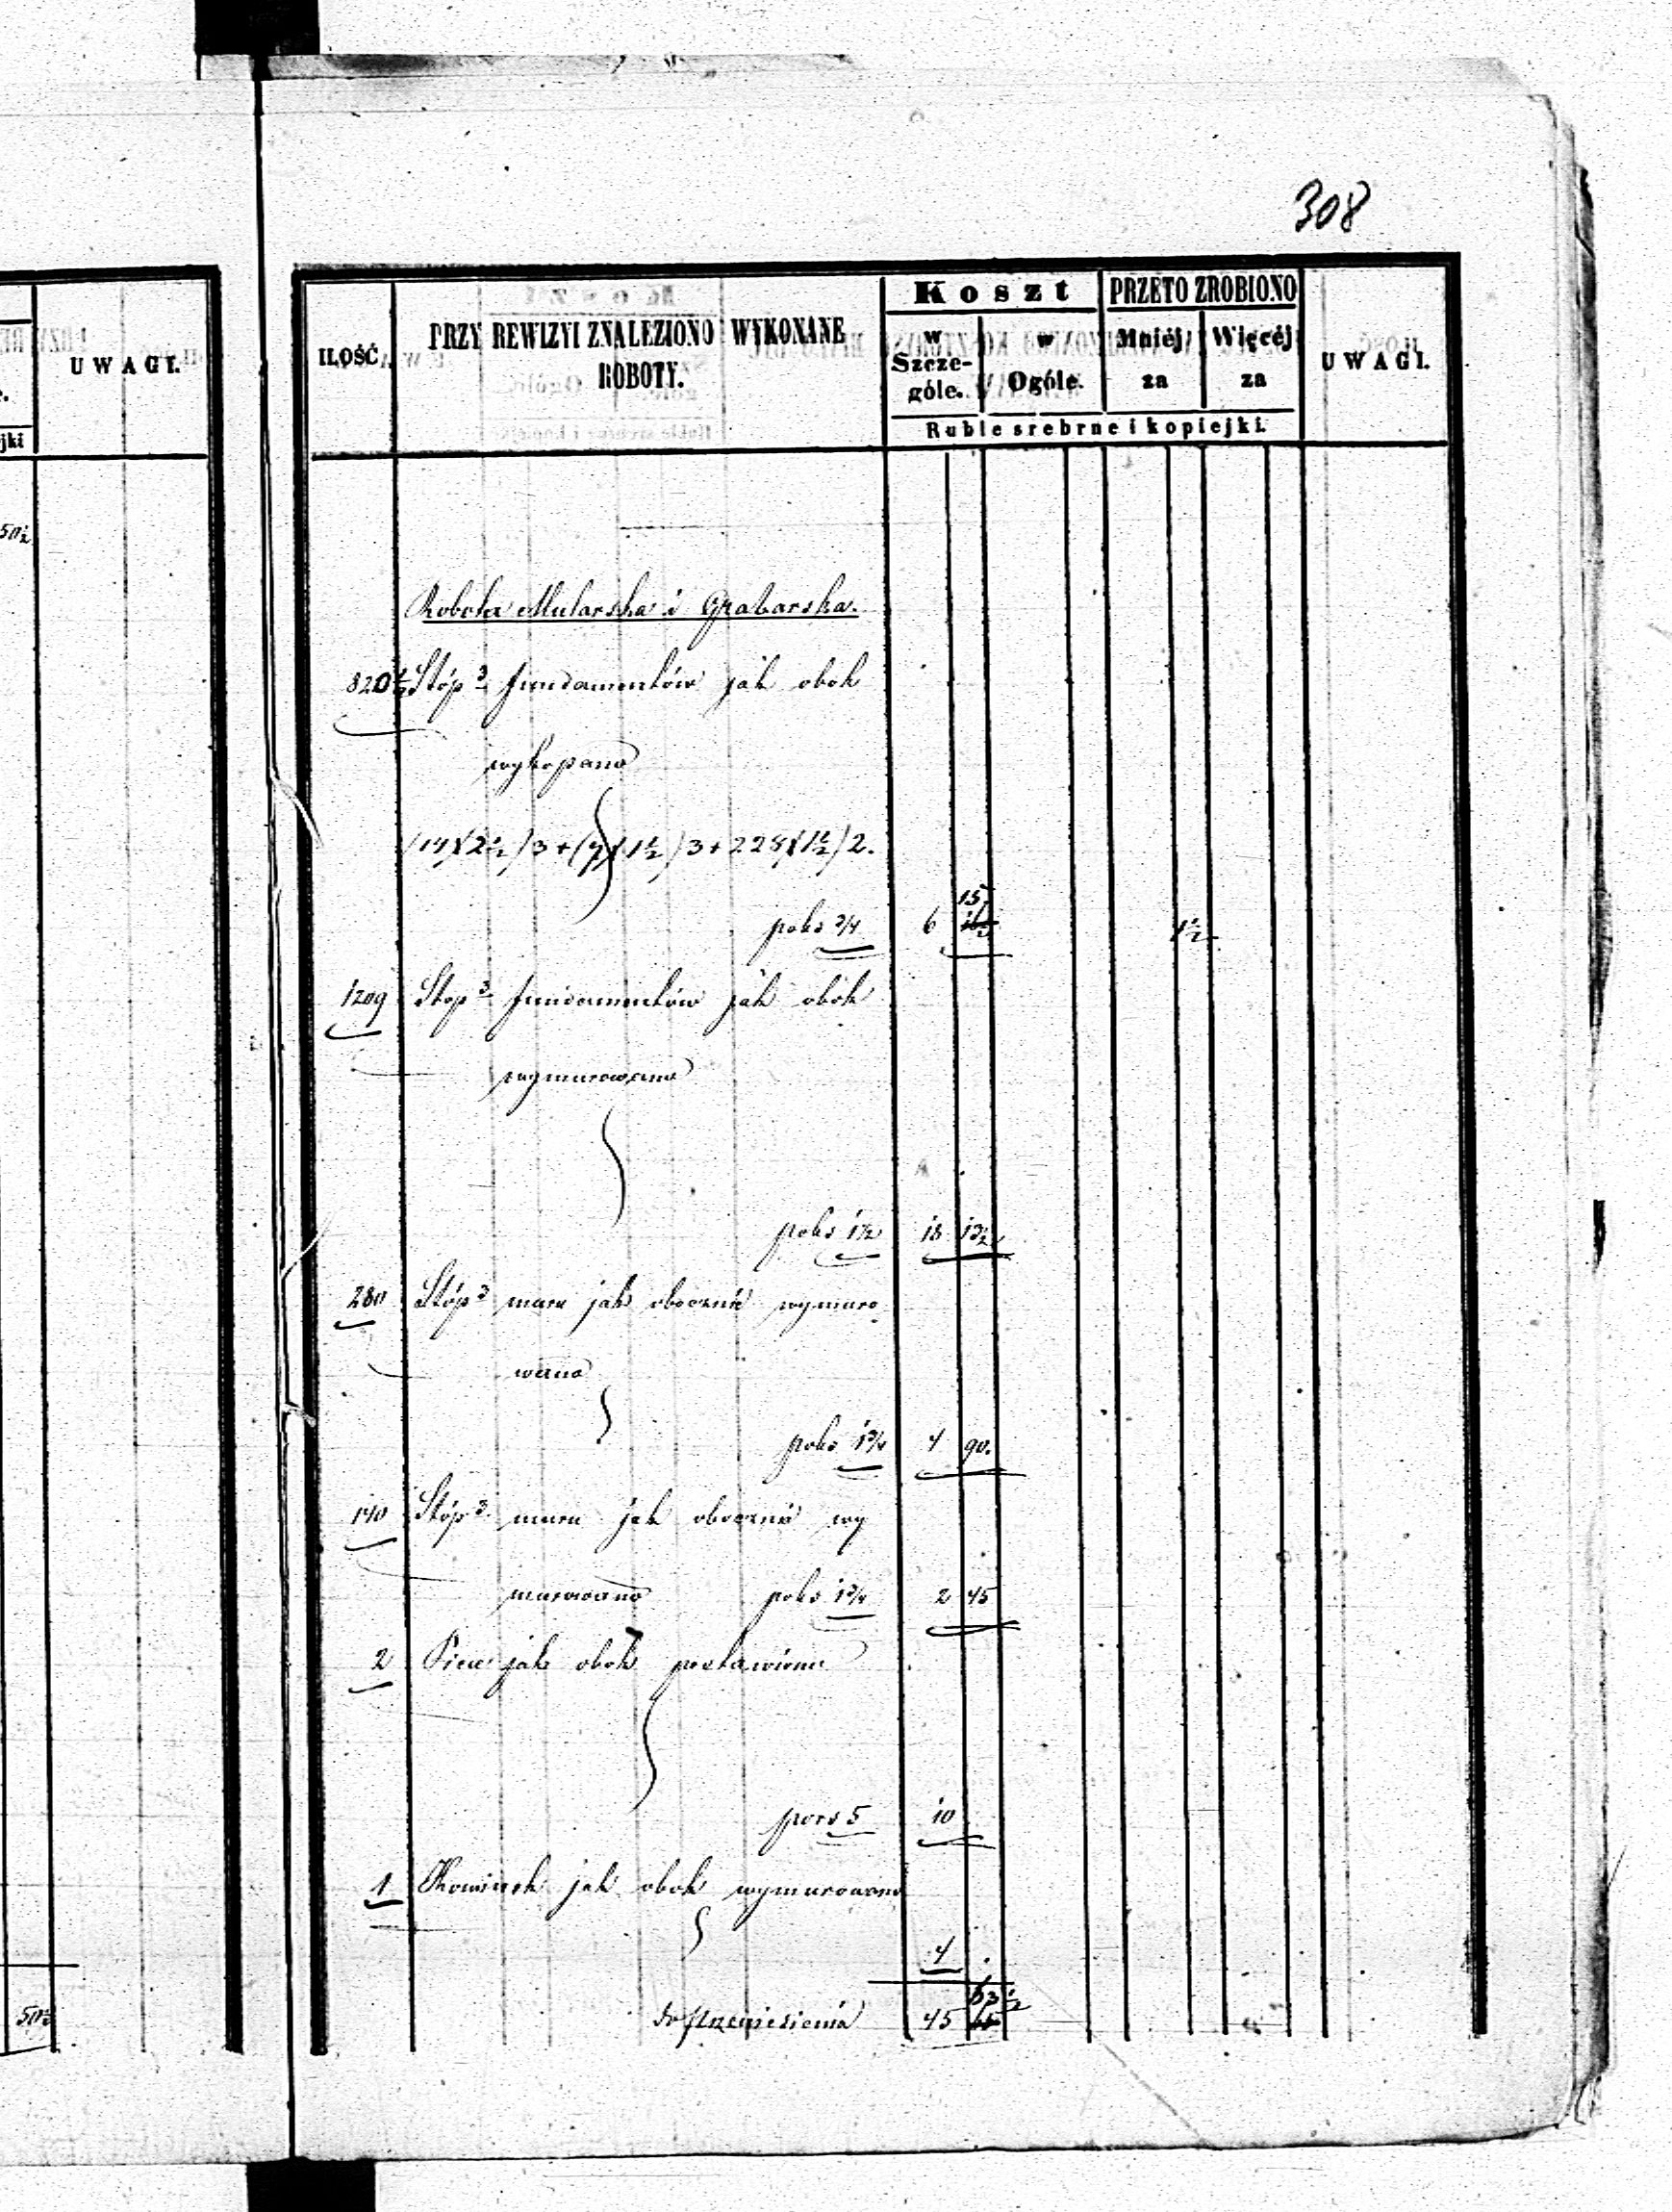 308
UWAGI.
jki
50½
50½
ILOŚĆ.
PRZY REWIZYI ZNALEZIONO WYKONANE
ROBOTY.
Koszt
w Szcze-
góle.
w
Ogóle.
PRZETO ZROBIONO
Mniéj
za
Więcéj
za
Ruble srebrne i kopiejki.
UWAGI.
Robota Mularska i Grabarska.
820½ Stóp 3 fundamentów jak obok
wykopano
3 + 1½) 3 + 228 (1½) 2.
po ks 3/4 6 15 1½
1209 Stop 3 fundamentów jak obok
wymurowano
po ks 1½ 18 13½
280 Stóp 3 muru jak obocznie wymuro
wano
po ks 1¾ 4 90.
140 Stóp 3 muru jak obocznie wy
murowano po ks 1¾ 2 45
2 Piece jak obok postawiono
po rs 5 10
1 Kominek jak obok wymurowano
4 .
do przeniesienia 45 63½